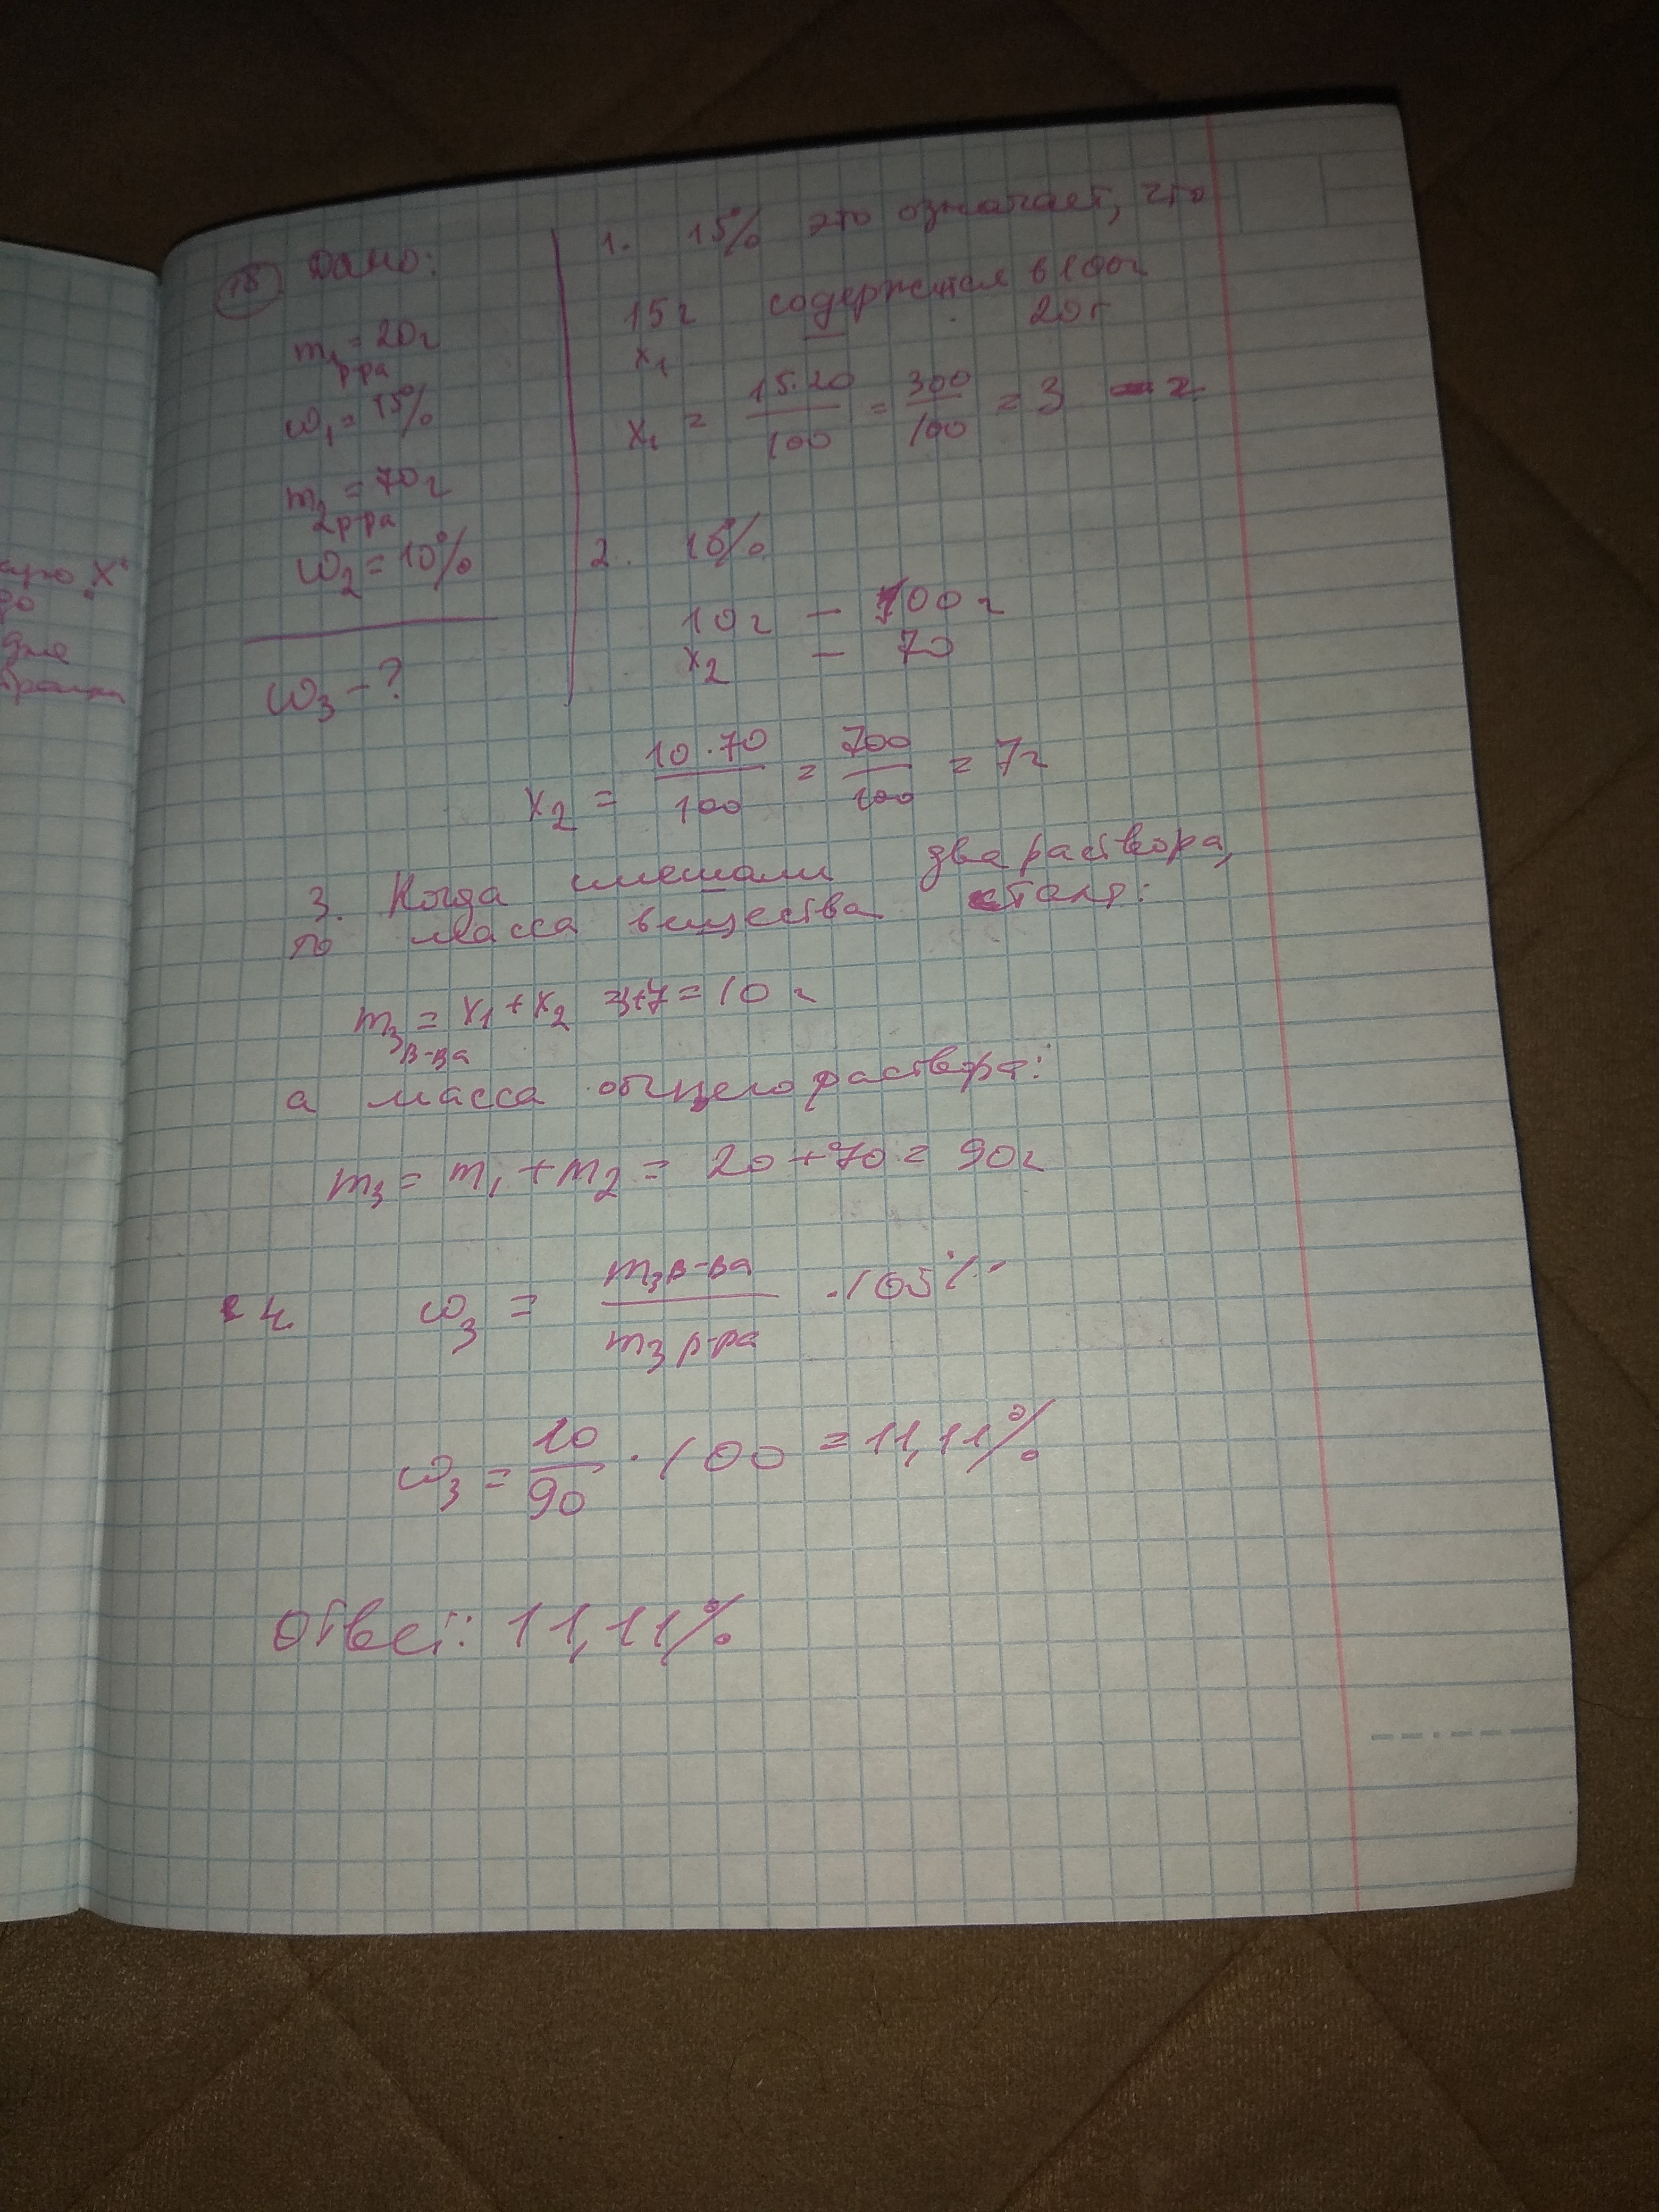 18 Дано:
m₁ = 20г
р-ра
ω₁ = 15%
m₂ = 70г
2р-ра
ω₂ = 10%
ω₃ - ?
1. 15% это означает, что
15г содержится в 100г
x₁ 20г
x₁ = 15·20/100 = 300/100 = 3 г
2. 10%
10г – 100г
x₂ – 70
x₂ = 10·70/100 = 700/100 = 7г
3. Когда смешали два раствора,
то масса вещества стала:
m₃ = x₁ + x₂ = 3+7 = 10 г
в-ва
а масса общего раствора:
m₃ = m₁ + m₂ = 20 + 70 = 90г
4. ω₃ = m₃в-ва/m₃р-ра · 100%
ω₃ = 10/90 · 100 = 11,11%
Ответ: 11,11%
"X"
до